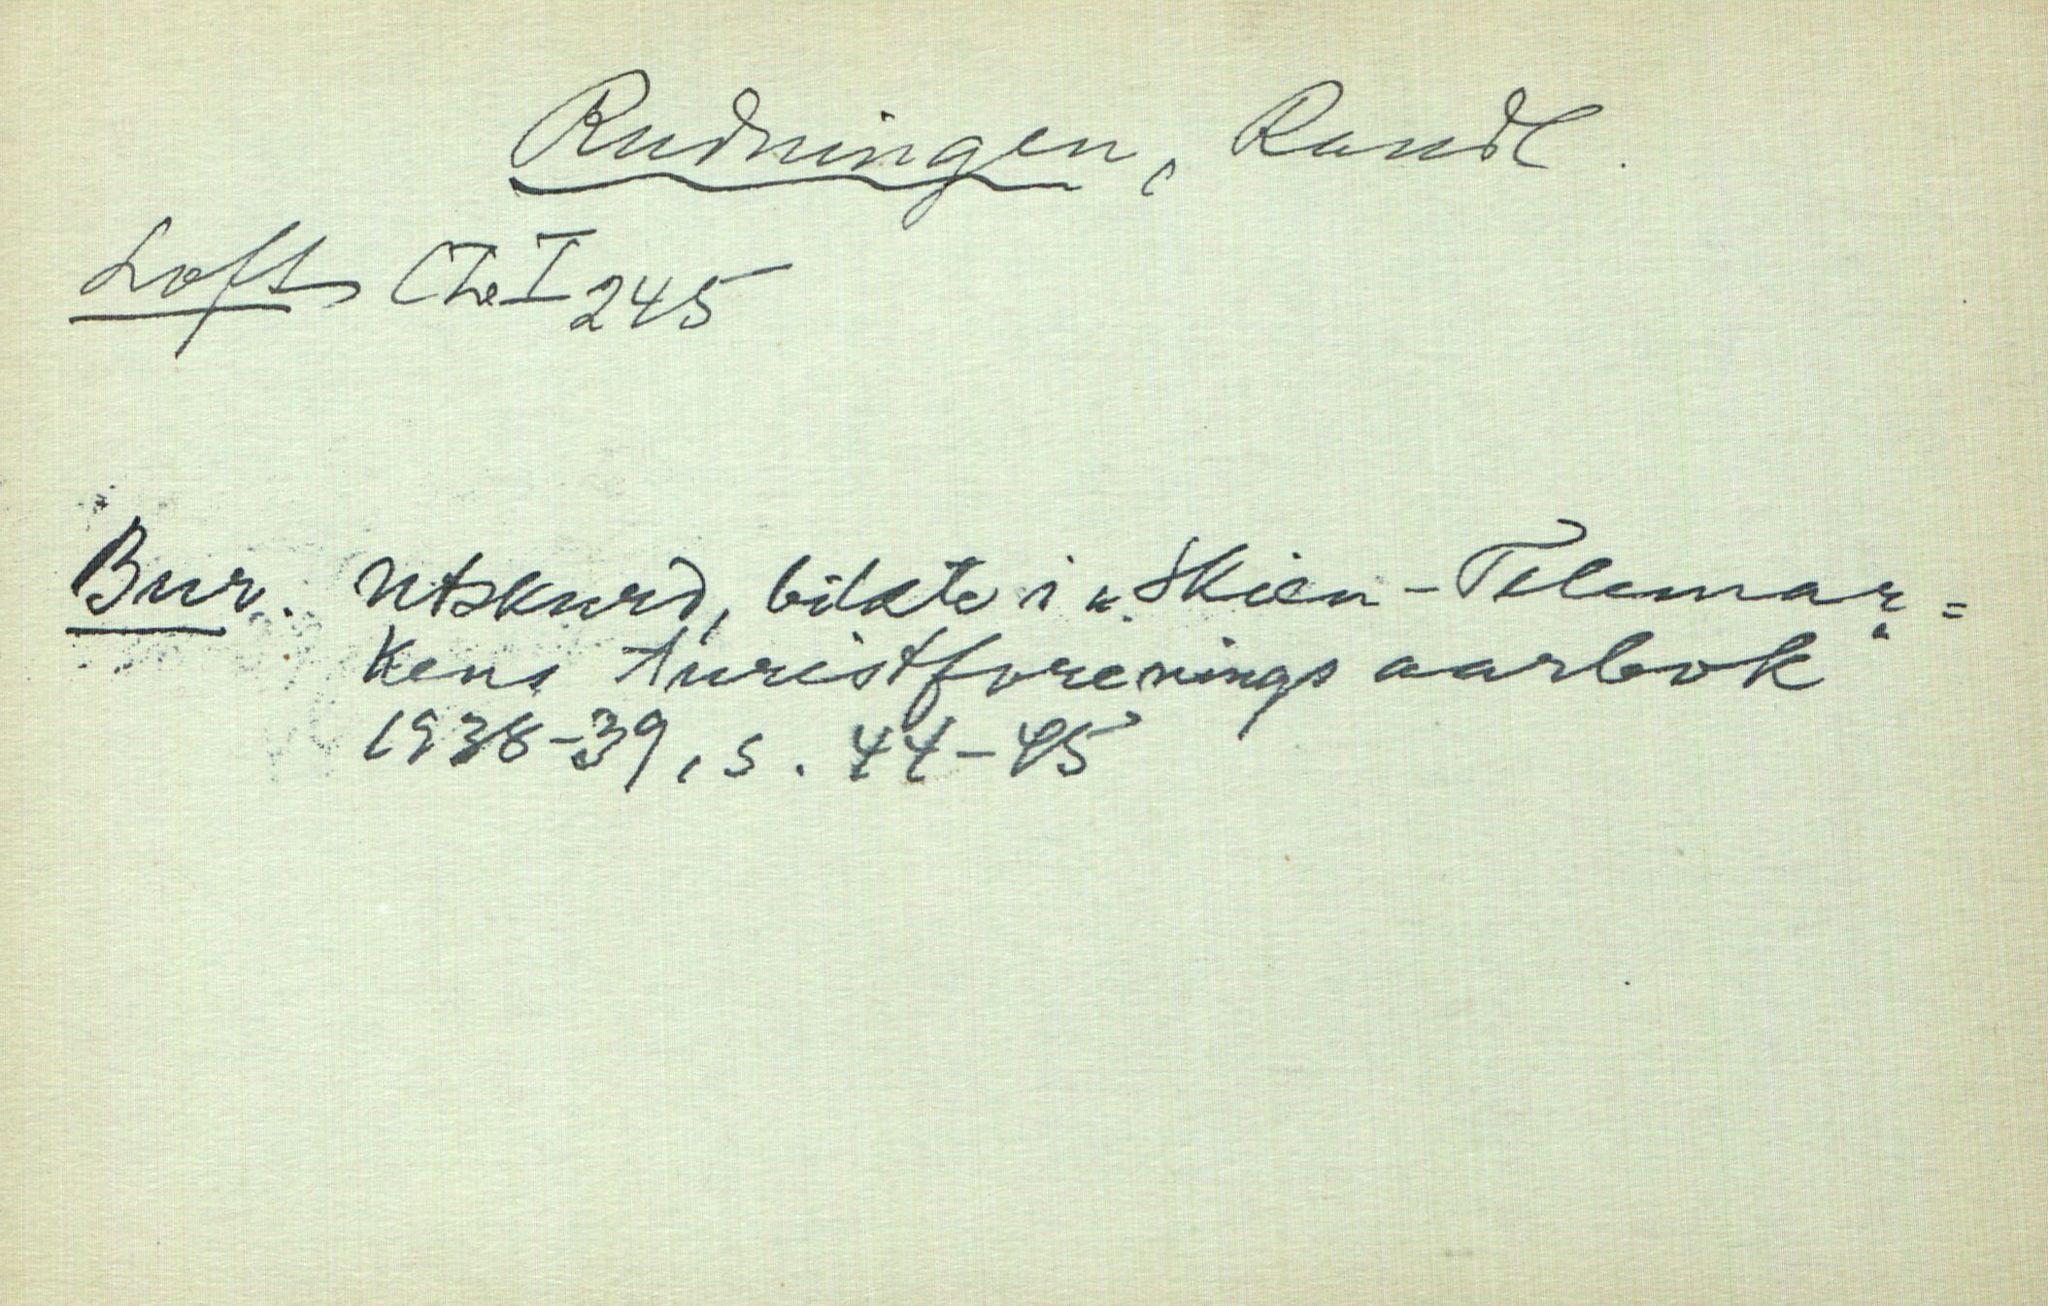 Rudningen, Raudl.
Loft, Che I 245
Bur. utskurd, bilæte i „Skien-Telemar=
kens turistforenings aarbok“
1938-39, s. 44-45